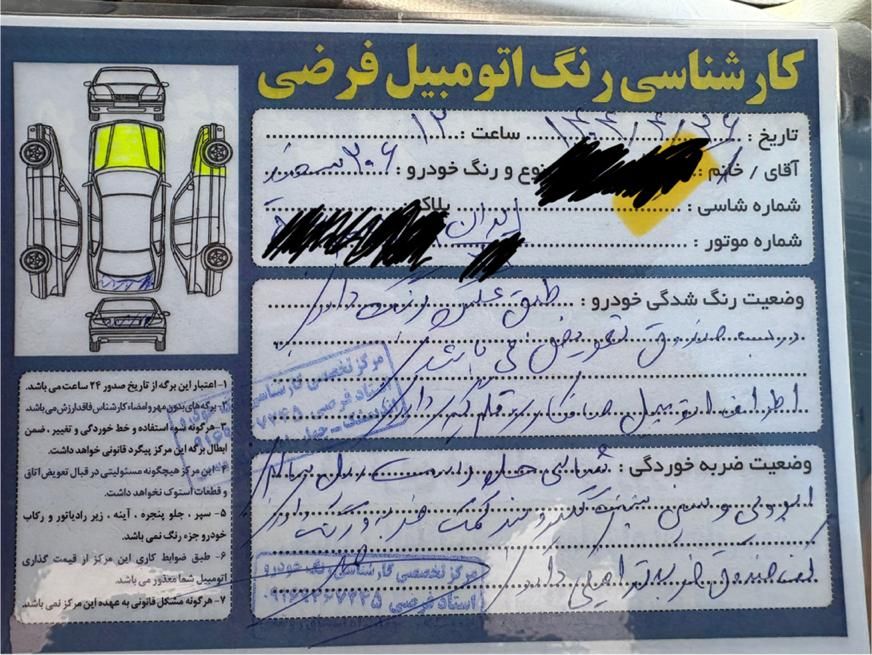 کارشناسی رنگ اتومبیل فرضی
تاریخ : ۱۴۰۴/۴/۲۶ ساعت : ۱۲
آقای / خانم : نوع و رنگ خودرو : ۲۰۶ سفید
شماره شاسی : پلاک : ایران
شماره موتور :
وضعیت رنگ شدگی خودرو : طبق عکس رنگ دارد
درب صندوق تعویض می باشد
اطراف اتومبیل صافکاری قلم گیری دارد
وضعیت ضربه خوردگی : شاسی جلو راست
سینی گلگیر عقب کمک ضربه و رنگ دارد
کف صندوق ضربه ترمیمی دارد
۱- اعتبار این برگه از تاریخ صدور ۲۴ ساعت می باشد.
۲- برگه های بدون مهر و امضاء کارشناس فاقد ارزش می باشد.
۳- هرگونه سوء استفاده و خط خوردگی و تغییر، ضمن
ابطال برگه این مرکز پیگرد قانونی خواهد داشت.
۴- این مرکز هیچگونه مسئولیتی در قبال تعویض اتاق
و قطعات استوک نخواهد داشت.
۵- سپر ، جلو پنجره ، آینه ، زیر رادیاتور و رکاب
خودرو جزء رنگ نمی باشد.
۶- طبق ضوابط کاری این مرکز از قیمت گذاری
اتومبیل شما معذور می باشد.
۷- هرگونه مشکل قانونی به عهده این مرکز نمی باشد.
مرکز تخصصی کارشناسی
استاد فرضی
مرکز تخصصی کارشناسی رنگ خودرو
استاد فرضی